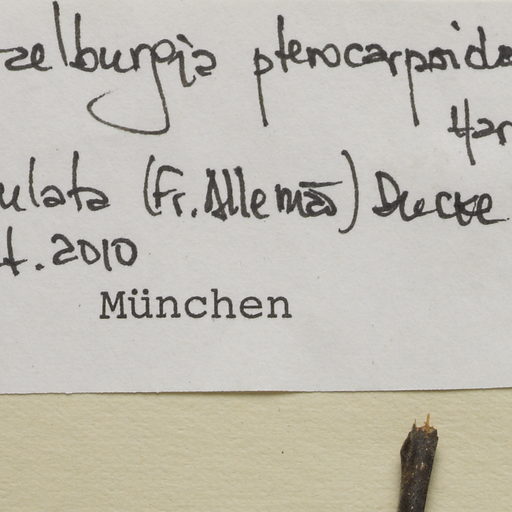 aelburgia pterocarpoide
Har
ulata (Fr. Allemão) Ducke
t. 2010
München